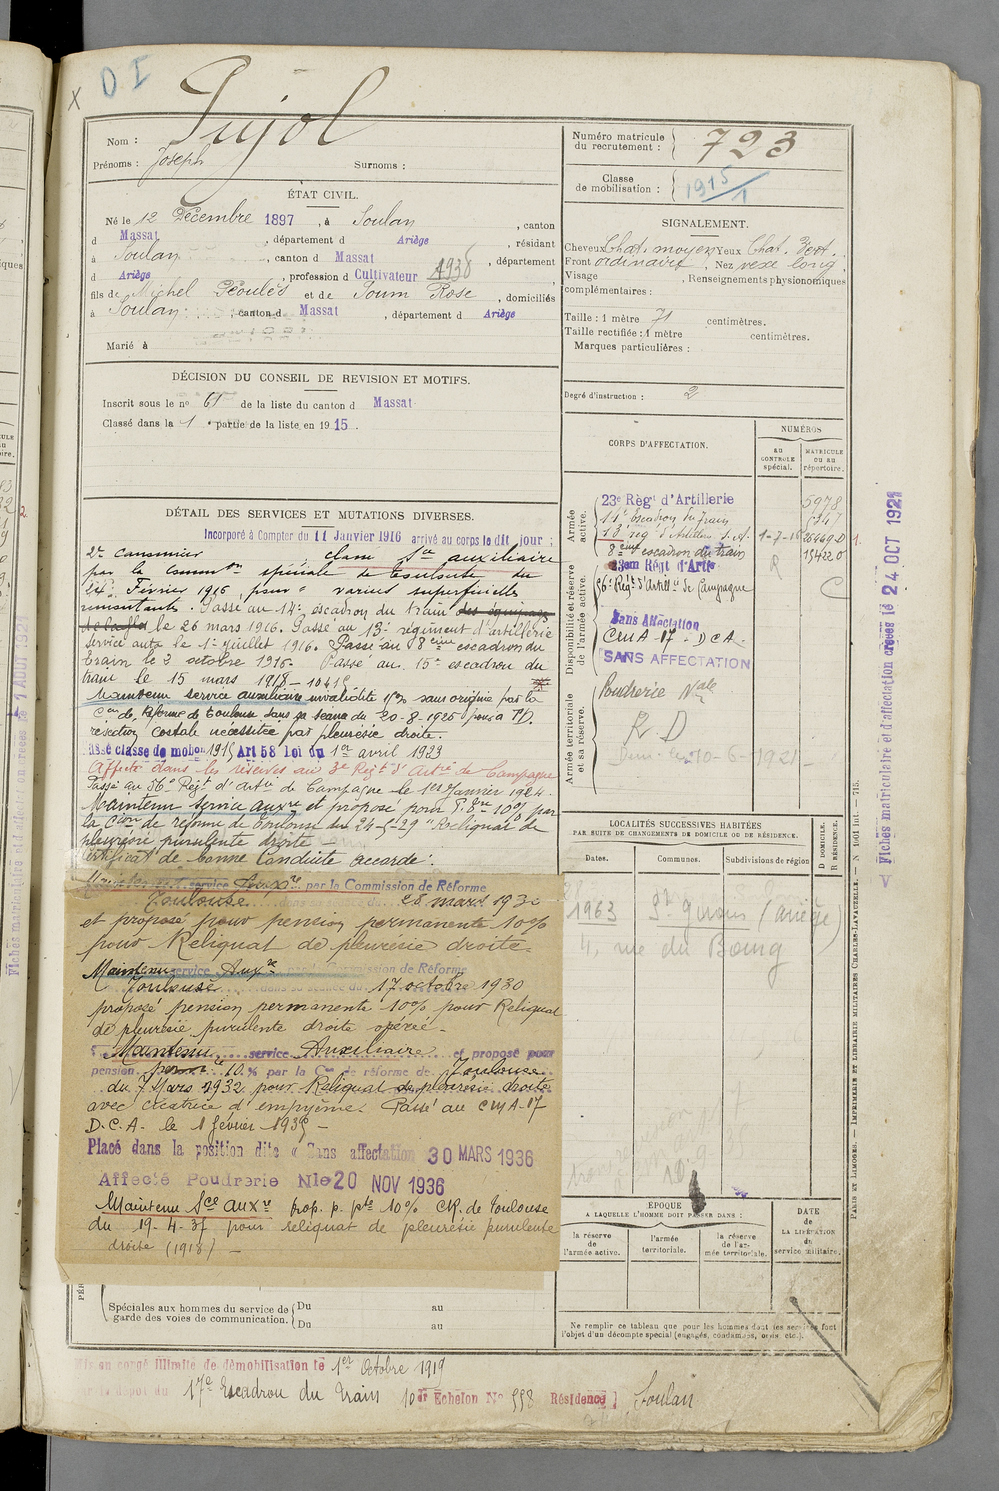 D I
X
Nom : Pujol
Prénoms : Joseph Surnoms :
Numéro matricule du recrutement : 723
Classe de mobilisation : 1915/1
ÉTAT CIVIL.
Né le 12 Décembre 1897, à Soulan, canton
d Massat, département d Ariège, résidant
à Soulan, canton d Massat, département
d Ariège, profession d Cultivateur 1938
fils de Michel Déoulés et de Soum Rose, domiciliés
à Soulan, canton d Massat, département d Ariège
Marié à
SIGNALEMENT.
Cheveux Chat. moyen Yeux Chat. Vert.
Front ordinaire, Nez vexe long
Visage , Renseignements physionomiques
complémentaires :
Taille : 1 mètre 71 centimètres.
Taille rectifiée : 1 mètre centimètres.
Marques particulières :
Degré d'instruction : 2
DÉCISION DU CONSEIL DE REVISION ET MOTIFS.
Inscrit sous le no 61 de la liste du canton d Massat
Classé dans la 1 partie de la liste en 1915.
DÉTAIL DES SERVICES ET MUTATIONS DIVERSES.
Incorporé à Compter du 11 Janvier 1916 arrivé au corps le dit jour ;
2e canonnier classé Sce auxiliaire
par la Common spéciale de Toulouse du
24 Février 1916 pour varices superficielles
remontantes. Passé au 14e escadron du train des équipages
le 26 mars 1916. Passé au 13e régiment d'artillerie
service auto le 1er juillet 1916. Passé au 8ème escadron du
train le 2 octobre 1916. Passé au 15e escadron du
train le 15 mars 1918
Maintenu service auxiliaire invalidité sans origine par la
Con de Réforme de Toulouse dans sa séance du 20-8-1925 pour
résection costale nécessitée par pleurésie droite.
Passé classe de mobon 1915 Art 58 loi du 1er avril 1923
Affecté dans les réserves au 3e Régt d'Artie de Campagne
Passé au 56e Régt d'artie de Campagne le 1er Janvier 1924.
Maintenu service auxre et proposé pour P. 10% par
la Cion de réforme de Toulouse du 24-5-29 "Reliquat de
pleurésie purulente droite
Certificat de bonne Conduite accordé.
Maintenu service Auxre par la Commission de Réforme
Toulouse dans sa séance du 28 mars 1930
et proposé pour pension permanente 10%
pour Reliquat de pleurésie droite.
Maintenu service Auxre par la Commission de Réforme
Toulouse dans sa séance du 17 octobre 1930
proposé pension permanente 10% pour Reliquat
de pleurésie purulente droite opérée.
Maintenu service Auxiliaire et proposé pour
pension perm 10 % par la Con de réforme de Toulouse
du 7 Mars 1932 pour Reliquat de pleurésie droite
avec cicatrice d'empyème. Passé au CMA-17
D.C.A. le 1 février 1935
Placé dans la position dite « Sans affectation 30 MARS 1936
Affecté Poudrerie Nle 20 NOV 1936
Maintenu Sce auxre prop. p. pte 10% CR. de Toulouse
du 19-4-37 pour reliquat de pleurésie purulente
droite (1918)
Spéciales aux hommes du service de garde des voies de communication.
Du au
Du au
CORPS D'AFFECTATION.
NUMÉROS
au CONTROLE spécial.
MATRICULE ou au répertoire.
Armée active.
23e Régt d'Artillerie 5978
14e Escadron du Train
13e rég d'Artillerie S.A. 1-7-16 26469
8ème escadron du train 15422
Disponibilité et réserve de l'armée active.
23em Régt d'Artie
56e Régt d'Artie de Campagne
Sans Affectation
CMA-17-DCA-
SANS AFFECTATION
Armée territoriale et sa réserve.
Poudrerie Nale
R.D
10-6-1921
LOCALITÉS SUCCESSIVES HABITÉES
PAR SUITE DE CHANGEMENTS DE DOMICILE OU DE RÉSIDENCE.
D DOMICILE. R RÉSIDENCE.
Dates. Communes. Subdivisions de région
1963 St Girons (Ariège)
4, rue du Bourg
ÉPOQUE
A LAQUELLE L'HOMME DOIT PASSER DANS :
la réserve de l'armée active.
l'armée territoriale.
la réserve de l'armée territoriale.
DATE DE LA LIBÉRATION du service militaire.
Ne remplir ce tableau que pour les hommes dont les services font
l'objet d'un décompte spécial (engagés, condamnés, omis, etc.).
Mis en congé illimité de démobilisation le 1er Octobre 1919
par le dépôt du 17e Escadron du Train 10e Échelon No 558 Résidence] Soulan
PARIS ET LIMOGES. — IMPRIMERIE ET LIBRAIRIE MILITAIRES CHARLES-LAVAUZELLE. — N 1001 Int. — 715.
Fiches matriculaire et d'affectation créées le 24 OCT 1921